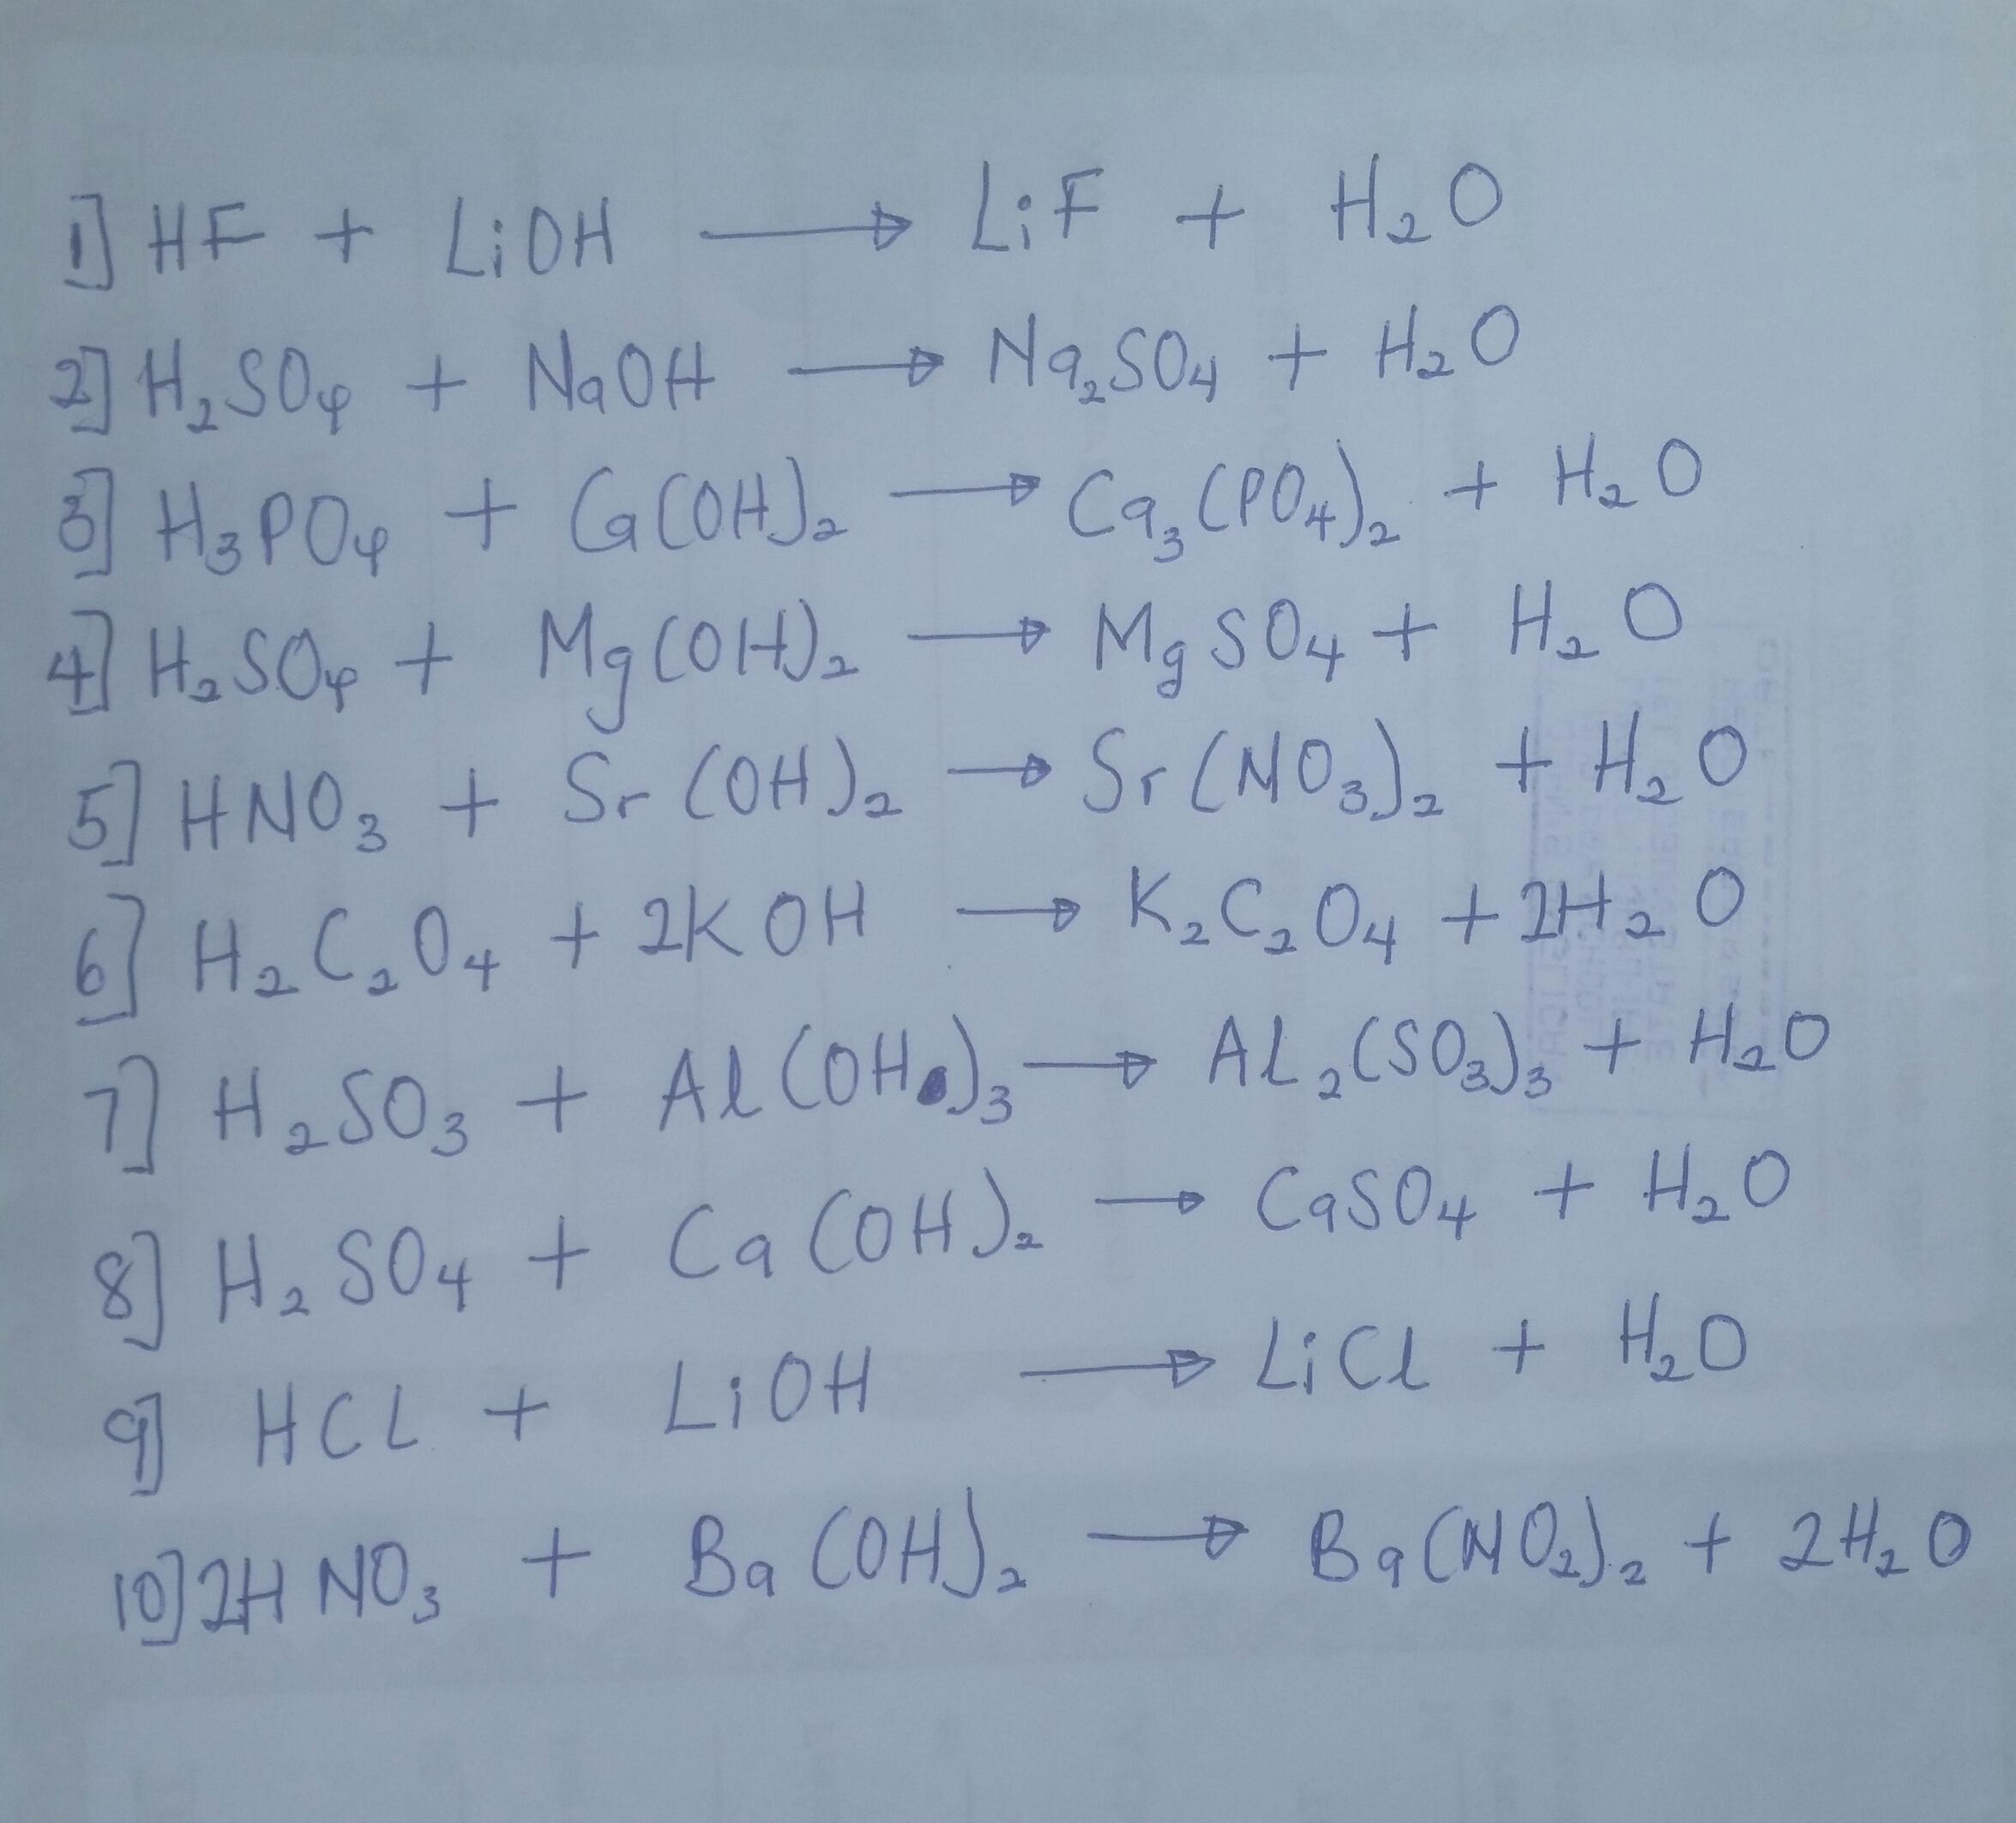 1] HF + LiOH → LiF + H₂O
2] H₂SO₄ + NaOH → Na₂SO₄ + H₂O
3] H₃PO₄ + Ca(OH)₂ → Ca₃(PO₄)₂ + H₂O
4] H₂SO₄ + Mg(OH)₂ → MgSO₄ + H₂O
5] HNO₃ + Sr(OH)₂ → Sr(NO₃)₂ + H₂O
6] H₂C₂O₄ + 2KOH → K₂C₂O₄ + 2H₂O
7] H₂SO₃ + Al(OH)₃ → AL₂(SO₃)₃ + H₂O
8] H₂SO₄ + Ca(OH)₂ → CaSO₄ + H₂O
9] HCL + LiOH → LiCl + H₂O
10] 2HNO₃ + Ba(OH)₂ → Ba(NO₂)₂ + 2H₂O